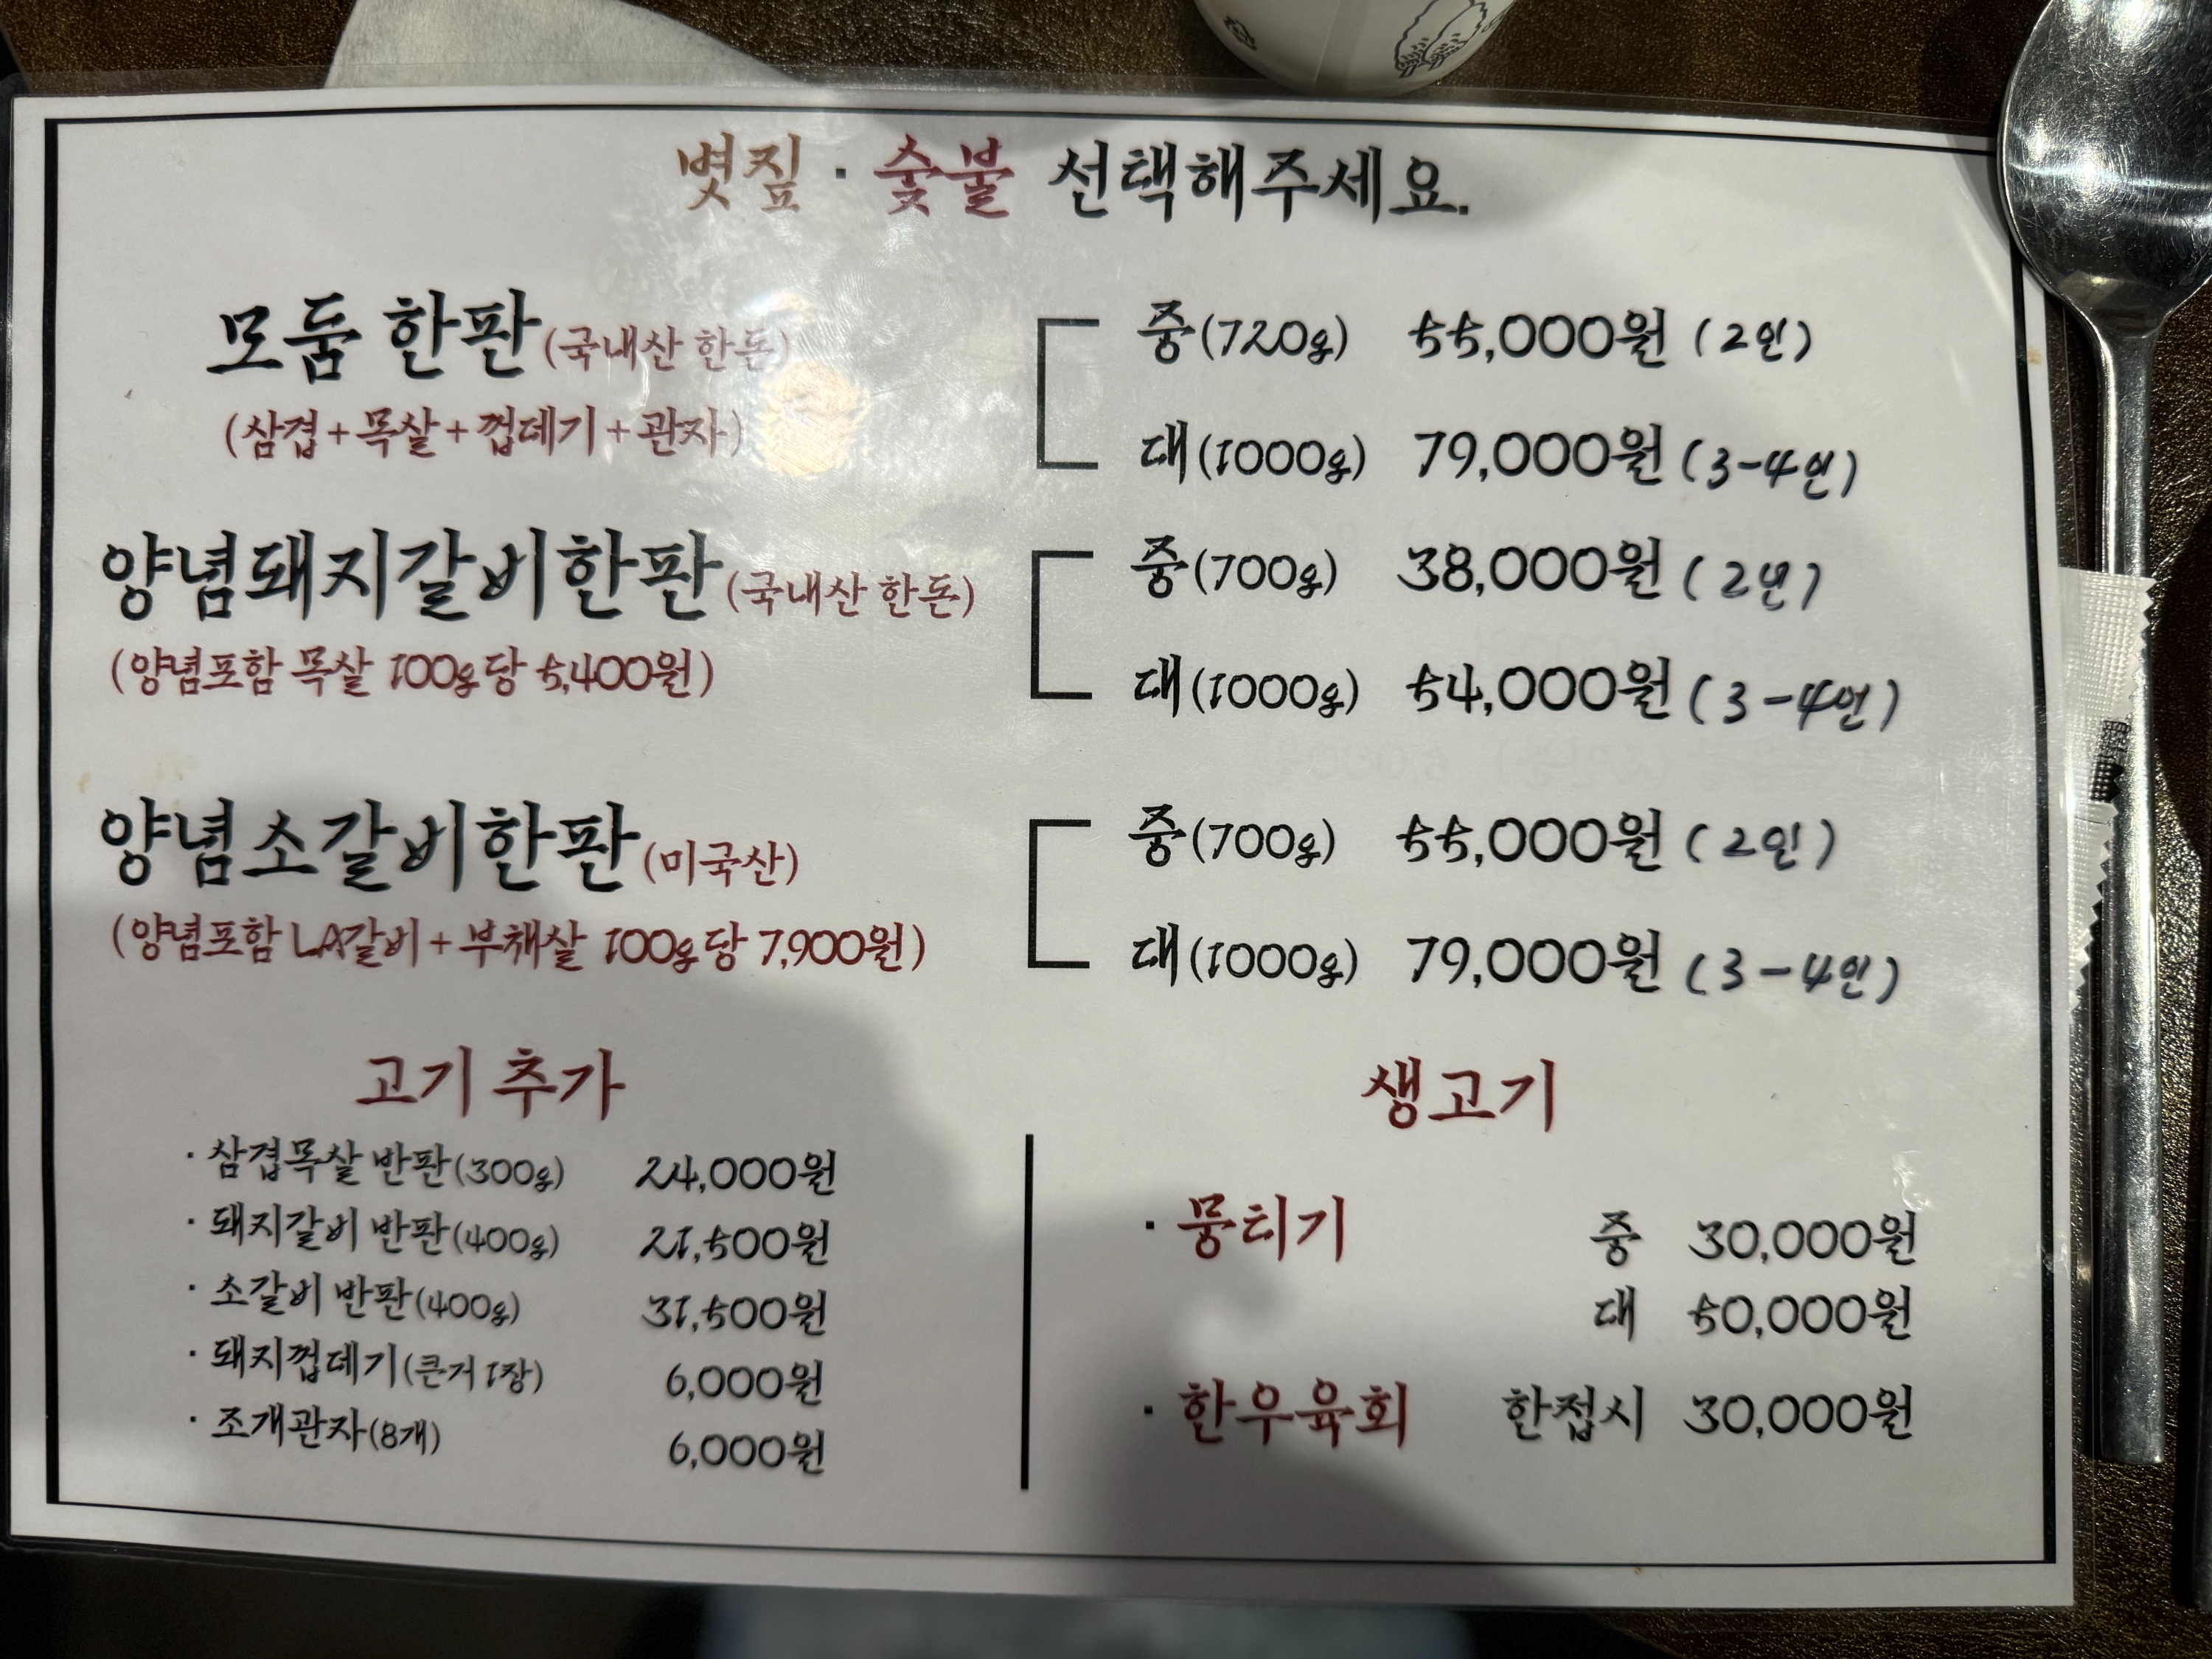 볏짚 · 숯불 선택해주세요.
모둠 한판(국내산 한돈)
(삼겹+목살+껍데기+관자)
중(720g) 55,000원 (2인)
대(1000g) 79,000원 (3-4인)
양념돼지갈비한판(국내산 한돈)
(양념포함 목살 100g당 5,400원)
중(700g) 38,000원 (2인)
대(1000g) 54,000원 (3-4인)
양념소갈비한판(미국산)
(양념포함 LA갈비+부채살 100g당 7,900원)
중(700g) 55,000원 (2인)
대(1000g) 79,000원 (3-4인)
고기 추가
· 삼겹목살 반판(300g) 24,000원
· 돼지갈비 반판(400g) 21,500원
· 소갈비 반판(400g) 31,500원
· 돼지껍데기(큰거 1장) 6,000원
· 조개관자(8개) 6,000원
생고기
· 뭉티기 중 30,000원
대 50,000원
· 한우육회 한접시 30,000원